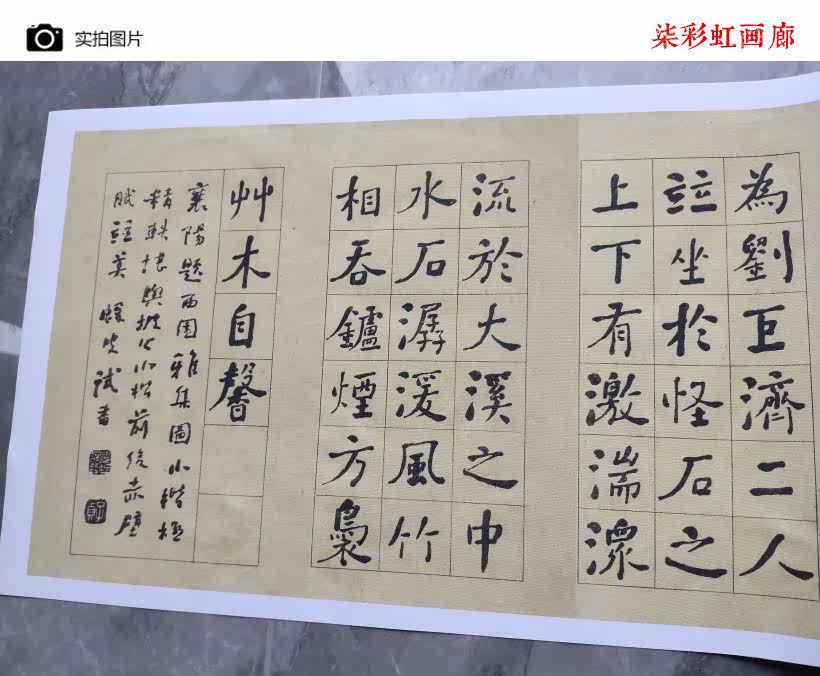 实拍图片
柒彩虹画廊
為劉巨濟二人
竝坐於怪石之
上下有激湍潀
流於大溪之中
水石潺湲風竹
相吞鑪煙方裊
艸木自馨
襄陽題西園雅集圖小楷極
精軼堪與坡公小楷前後赤壁
賦竝美 試書